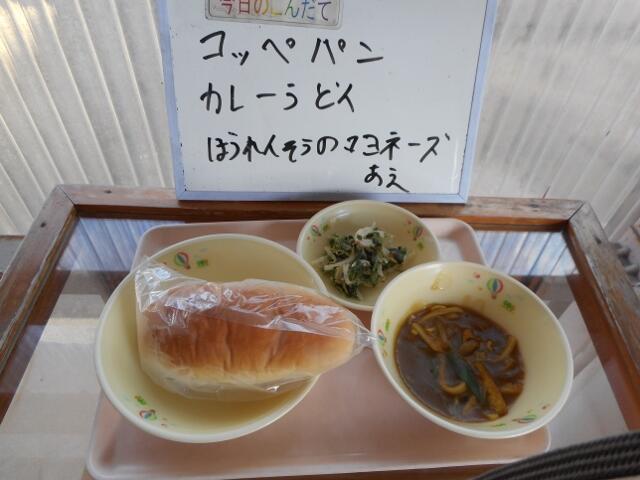 今日のこんだて
コッペパン
カレーうどん
ほうれんそうのマヨネーズ
あえ